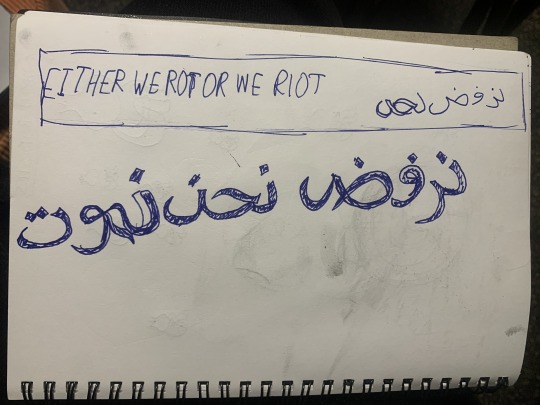 EITHER WE ROT OR WE RIOT نرفض
نرفض نحن نموت